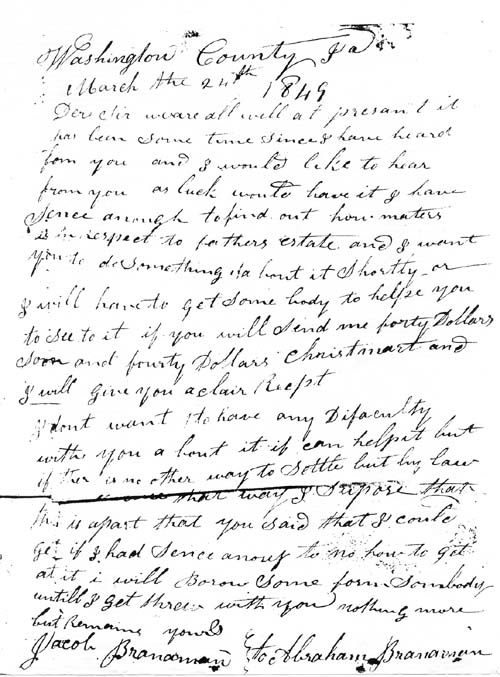 Washington County Ia
March the 24th 1849
Der Sir we are all well at presant it
has ben some time since I have heard
fom you and I would like to hear
from you as luck would have it I have
sence anough to find out how maters
is in respect to fathers estate and I want
you to do Something a bout it Shortly or
I will have to get Some body to helpe you
to see to it if you will send me forty Dollars
soon and fourty Dollars Christmart and
I will give you a clair Recept
I dont want to have any Difaculty
with you a bout it if can helpit but
if ther is no other way to Sottle but by law
that way I supose that
this is apart that you said that I could
get if I had Sence anouf to no how to get
at it i will Borow Some form Sombody
untill I get threw with you nothing more
but Remains yours
Jacob Branaman to Abraham Branaman